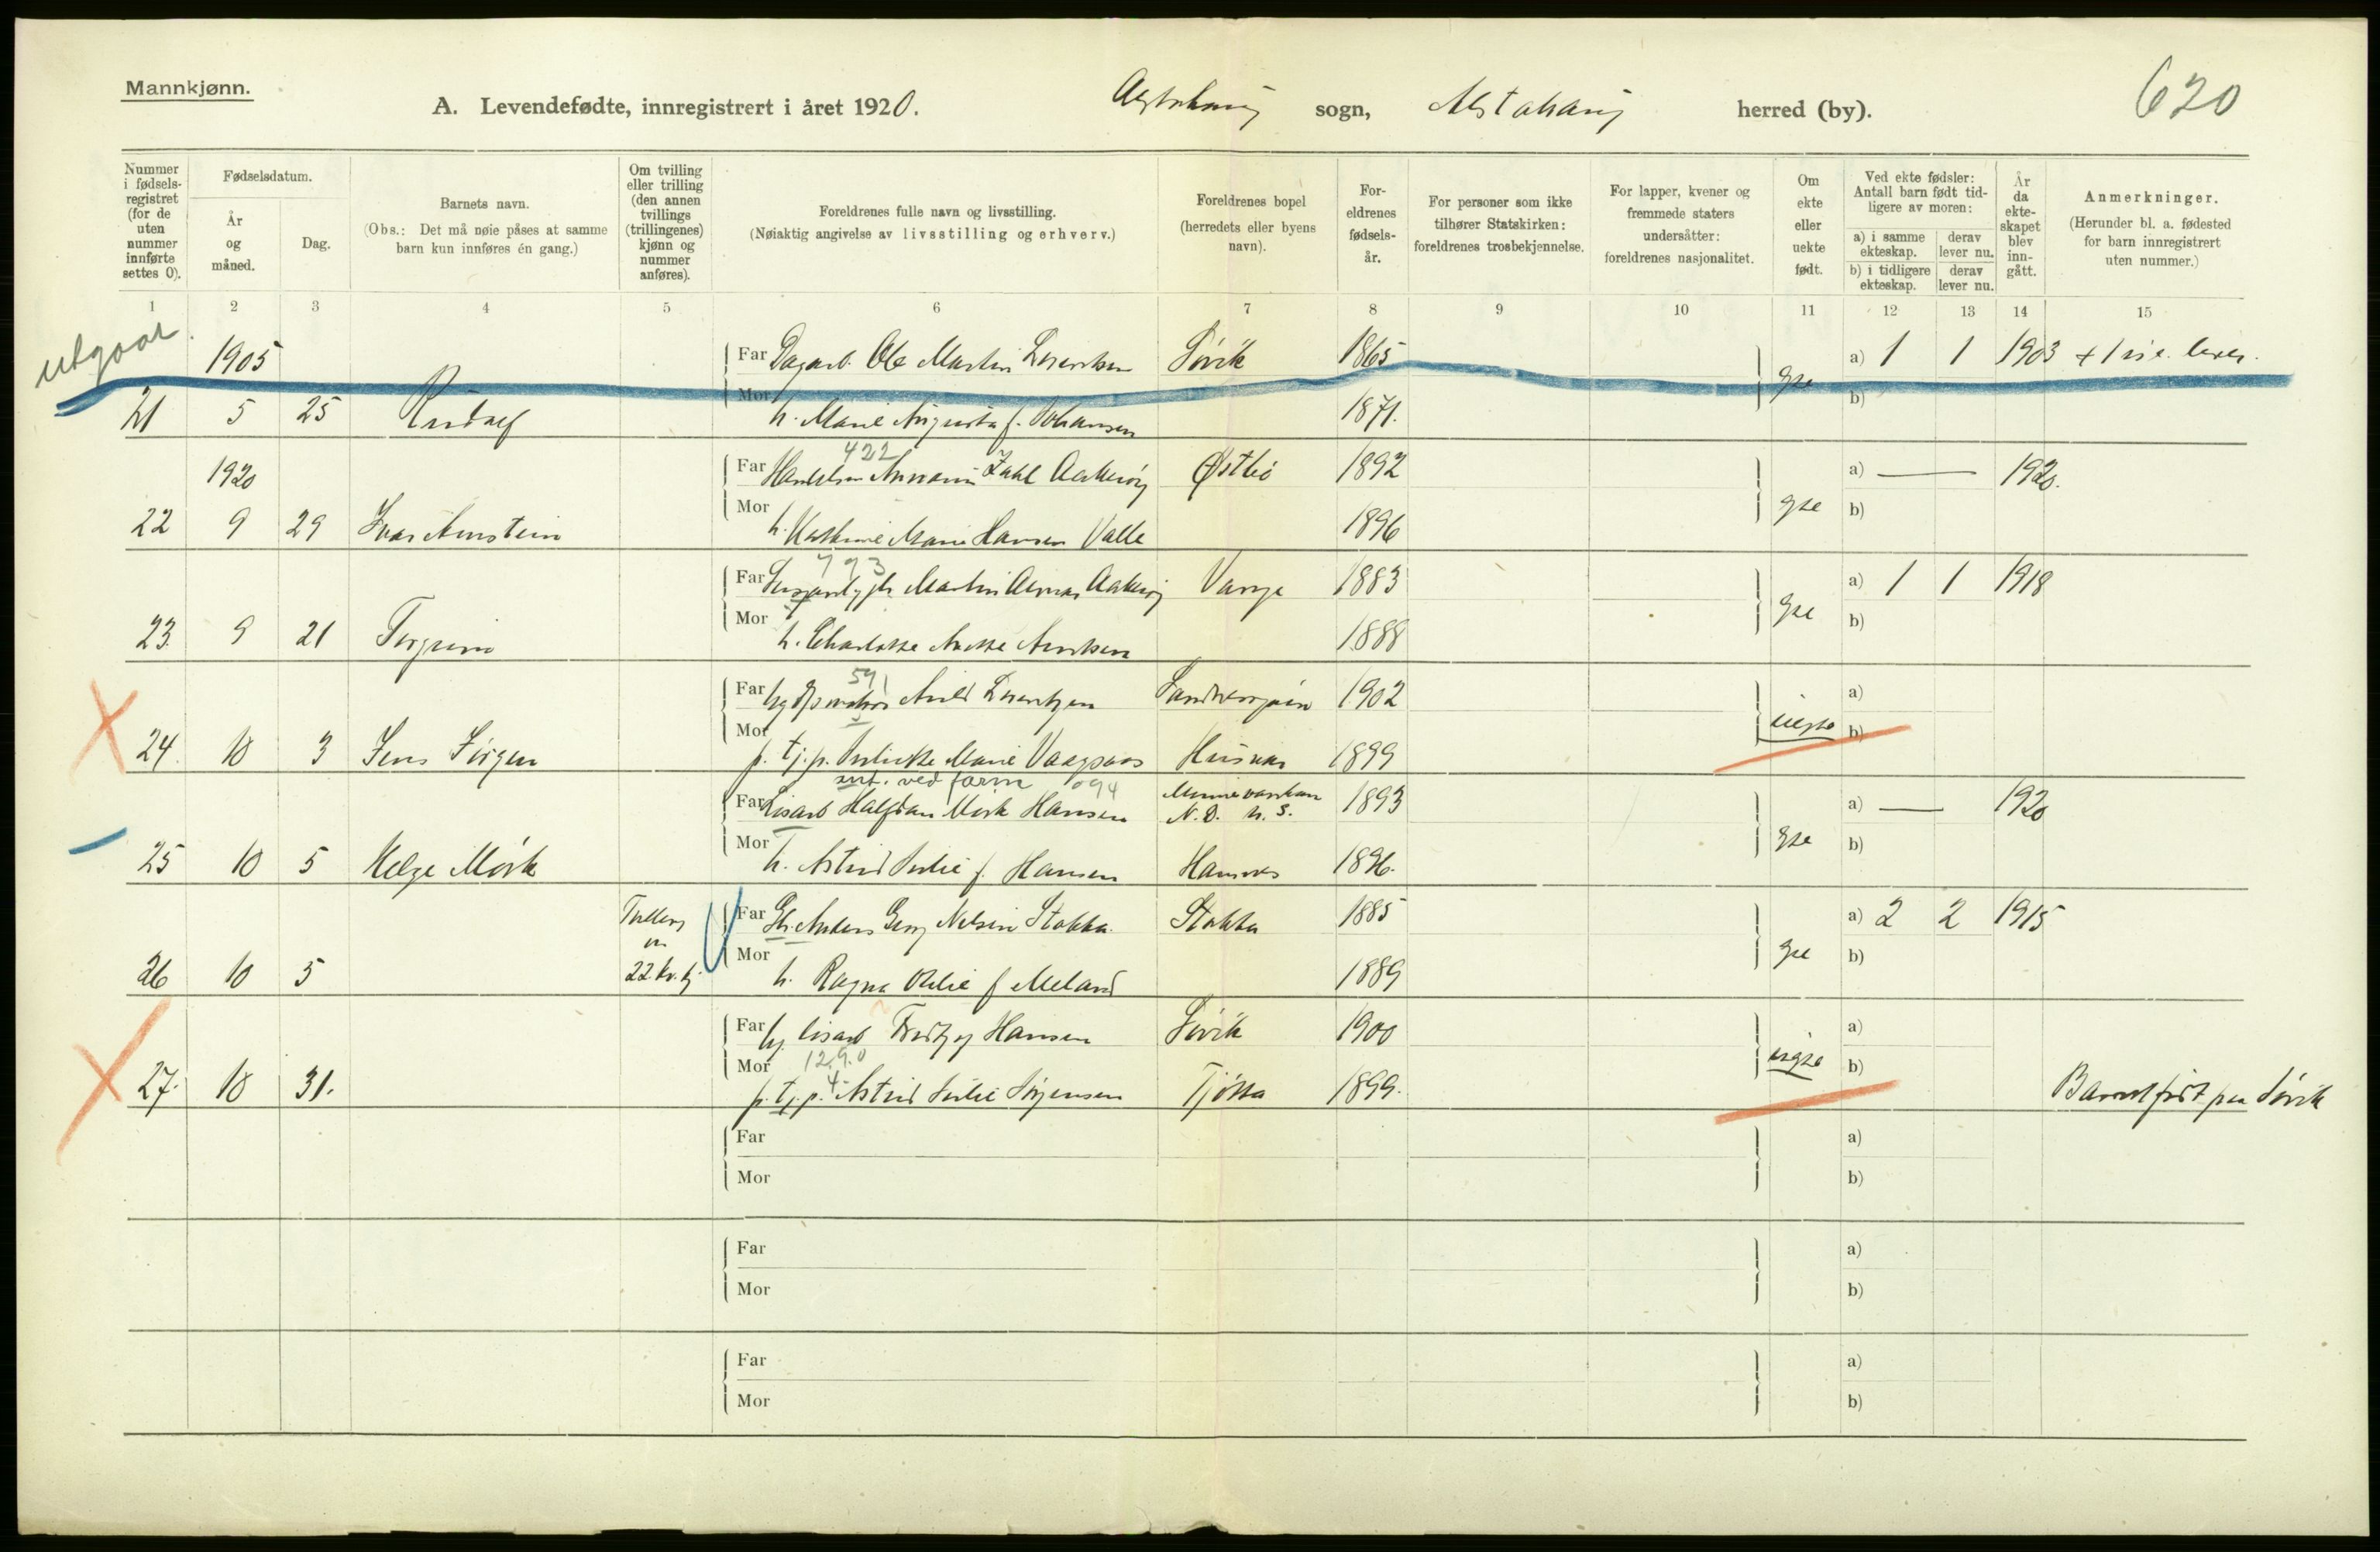 Mannkjønn.
A. Levendefødte, innregistrert i året 1920.
sogn, Alstahaug herred (by).
620
Nummer i fødsels-registret (for de uten nummer innførte settes 0).
Fødselsdatum.
År og måned.
Dag.
Barnets navn.
(Obs.: Det må nøie påses at samme barn kun innføres én gang.)
Om tvilling eller trilling (den annen tvillings (trillingenes) kjønn og nummer anføres).
Foreldrenes fulle navn og livsstilling.
(Nøiaktig angivelse av livsstilling og erhverv.)
Foreldrenes bopel (herredets eller byens navn).
For-eldrenes fødsels-år.
For personer som ikke tilhører Statskirken: foreldrenes trosbekjennelse.
For lapper, kvener og fremmede staters undersåtter: foreldrenes nasjonalitet.
Om ekte eller uekte født.
Ved ekte fødsler: Antall barn født tid-ligere av moren:
a) i samme ekteskap.
derav lever nu.
b) i tidligere ekteskap.
derav lever nu.
År da ekte-skapet blev inn-gått.
Anmerkninger.
(Herunder bl. a. fødested for barn innregistrert uten nummer.)
1 2 3 4 5 6 7 8 9 10 11 12 13 14 15
utgaar
1905 Far Dagarb. Ole Martin Lorentsen Søvik 1865 a) 1 1 1903 + 1
21 5 25 Rudolf Mor h. Marie Augusta f. Johansen 1871. b)
422
1920 Far Zahl Østbø 1892 a) — 1920.
22 9 29 Ivar Arnstein Mor h. Marie Hansen Valle 1896 b)
793
Far Martin 1883 a) 1 1 1918
23. 9 21 Torgrim Mor h. Charlotte 1888 b)
591
Far Lorentzen Sandnessjøen 1902 a)
24. 10 3 Jens Jørgen Mor p. tj.p. Marie Husvær 1899 uegte b)
ved farm 094
Far Halfdan Mørk Hansen N.D. U.S. 1893 a) — 1920
25 10 5 Helge Mørk Mor h. Astrid Julie f. Hansen Hamnes 1896. b)
Tvilling m 22 kv.kj
Far Anders Georg Nilsen Stokka Stokka 1885 a) 2 2 1915
26 10 5 Mor h. Ragna Otelie f Meland 1889 b)
Far Hansen Søvik 1900 a)
12.9.0
4
27. 10 31. Mor p. tj.p. Astrid Julie Jørgensen Tjøtta 1899. uegte b) Barnet født paa Søvik
Far a)
Mor b)
Far a)
Mor b)
Far a)
Mor b)